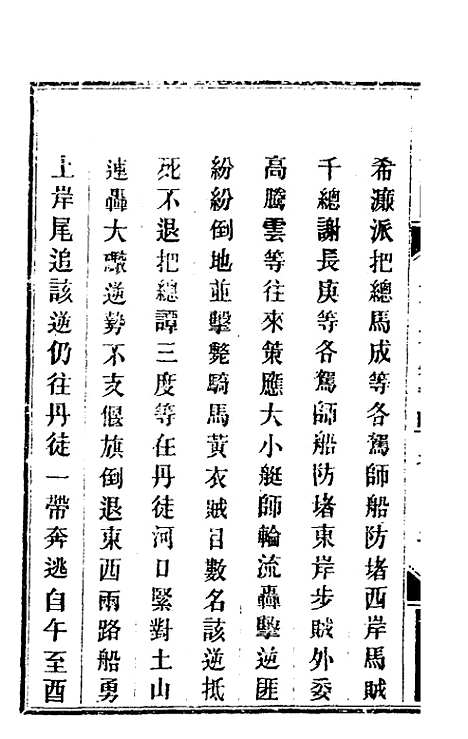 希濂派把總馬成等各駕師船防堵西岸馬賊
千總謝長庚等各駕師船防堵東岸步賊外委
高騰雲等往來策應大小艇師輪流轟擊逆匪
紛紛倒地並擊斃騎馬黃衣賊目數名該逆抵
死不退把總譚三度等在丹徒河口緊對土山
連轟大礮逆勢不支偃旗倒退東西兩路船勇
上岸尾追該逆仍往丹徒一帶奔逃自午至酉